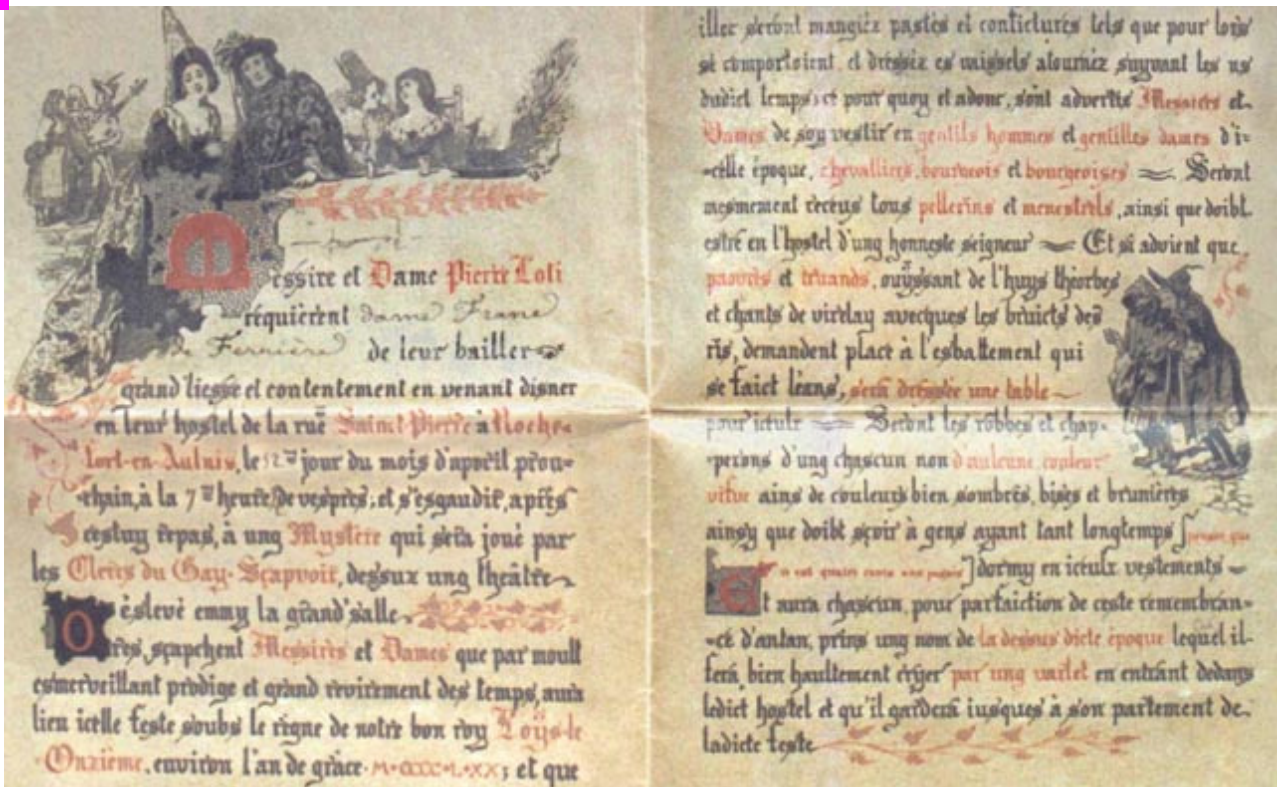 Messire et Dame Pierre Loti
requièrent dame Franc
de Ferrière de leur bailler
grand liesse et contentement en venant disner
en leur hostel de la rue Sainct-Pierre à Roche-
fort-en-Aulnis, le 12me jour du mois d'apvril prou-
-chain, à la 7me heure de vesprès, et s'esgaudir, après
cestuy repas, à ung Mystère qui sera joué par
les Clercs du Gay-Sçapvoir, dessux ung théâtre
eslevé emmy la grand'salle
Orès, sçapchent Messires et Dames que par moult
esmerveillant prodige et grand revirement des temps, aura
lieu icelle feste soubs le règne de notre bon roy Loÿs-le
-Onzième, environ l'an de grâce M·CCCC·L·XX; et que
illec seront mangiéz pastés et confictures tels que pour lors
se comportoient, et dresséz es vaissels atournéz suyvant les us
dudict temps; et pour quoy et adonc, sont advertis Messires et
Dames de soy vestir en gentils hommes et gentilles dames d'i-
-celle époque, chevalliers, bourgeois et bourgeoises Seront
mesmement receus tous pellerins et menestrels, ainsi que doibt
estre en l'hostel d'ung honneste seigneur Et si advient que
pauvres et truands, ouÿssant de l'huys théorbes
et chants de virelay avecques les bruicts des
ris, demandent place à l'esbattement qui
se faict léans, sera dressée une table
pour iceulx Seront les robbes et chap-
-perons d'ung chascun non d'aulcune couleur
vifve ains de couleurs bien sombres, bises et brunières
ainsy que doibt seoir à gens ayant tant longtemps [pensez que
ce est quatre cents ans passés] dormy en iceulx vestements
Et aura chascun, pour parfaiction de ceste remembran-
-ce d'antan, prins ung nom de la dessus dicte époque lequel il
fera bien haultement cryer par ung varlet en entrant dedans
ledict hostel et qu'il gardera iusques à son partement de
ladicte feste